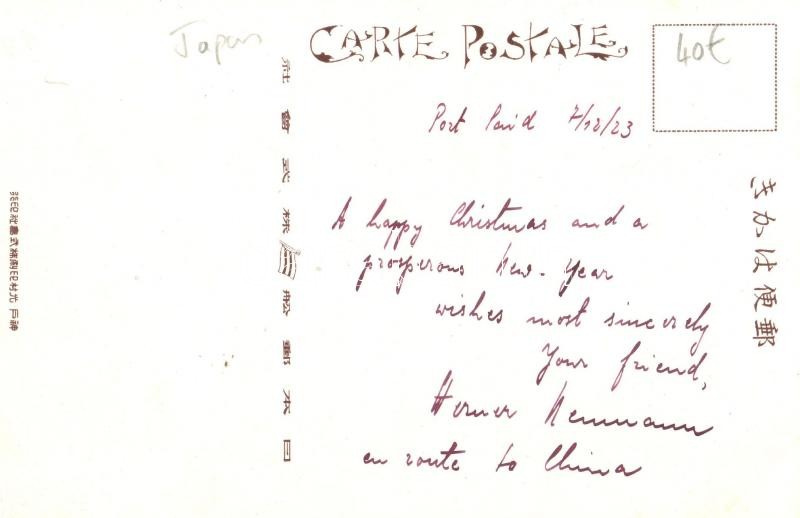 Japan
CARTE POSTALE
40€
Port Said 7/12/23
A happy Christmas and a
prosperous New-Year
wishes most sincerely
Your friend,
Werner Neumann
en route to China
郵便はかき
日本郵船株式會社
神戸 光村印刷株式會社